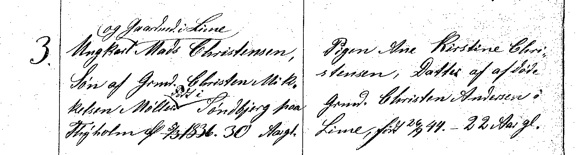 og Gaardmd. i Lime
3. Ungkarl Mads Christensen,
Søn af Grmd. Christen Mik-
kelsen Møller Født i Tøndbjerg paa
Thyholm d. 5/3 1836. 30 Aar gl.
Pigen Ane Kirstine Chri-
stensen, Datter af afdøde
Grmd. Christen Andersen i
Lime, født 44. - 22 Aar gl.